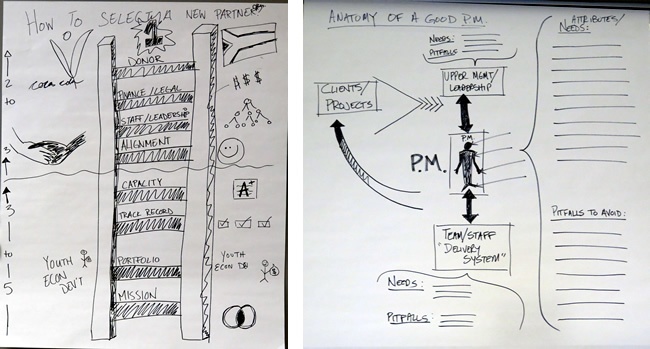 HOW TO SELECT A NEW PARTNER
1
DONOR
coca cola
FINANCE/LEGAL
$ $ $
STAFF/LEADERSHIP
ALIGNMENT
2
to
3
CAPACITY
A+
TRACK RECORD
3
to
5
YOUTH
ECON
DEV'T
PORTFOLIO
YOUTH
ECON DEV
MISSION
ANATOMY OF A GOOD P.M.
NEEDS:
PITFALLS:
UPPER MGMT/
LEADERSHIP
CLIENTS/
PROJECTS
P.M.
P.M.
TEAM/STAFF
"DELIVERY
SYSTEM"
NEEDS:
PITFALLS:
ATTRIBUTES/
NEEDS:
PITFALLS TO AVOID: